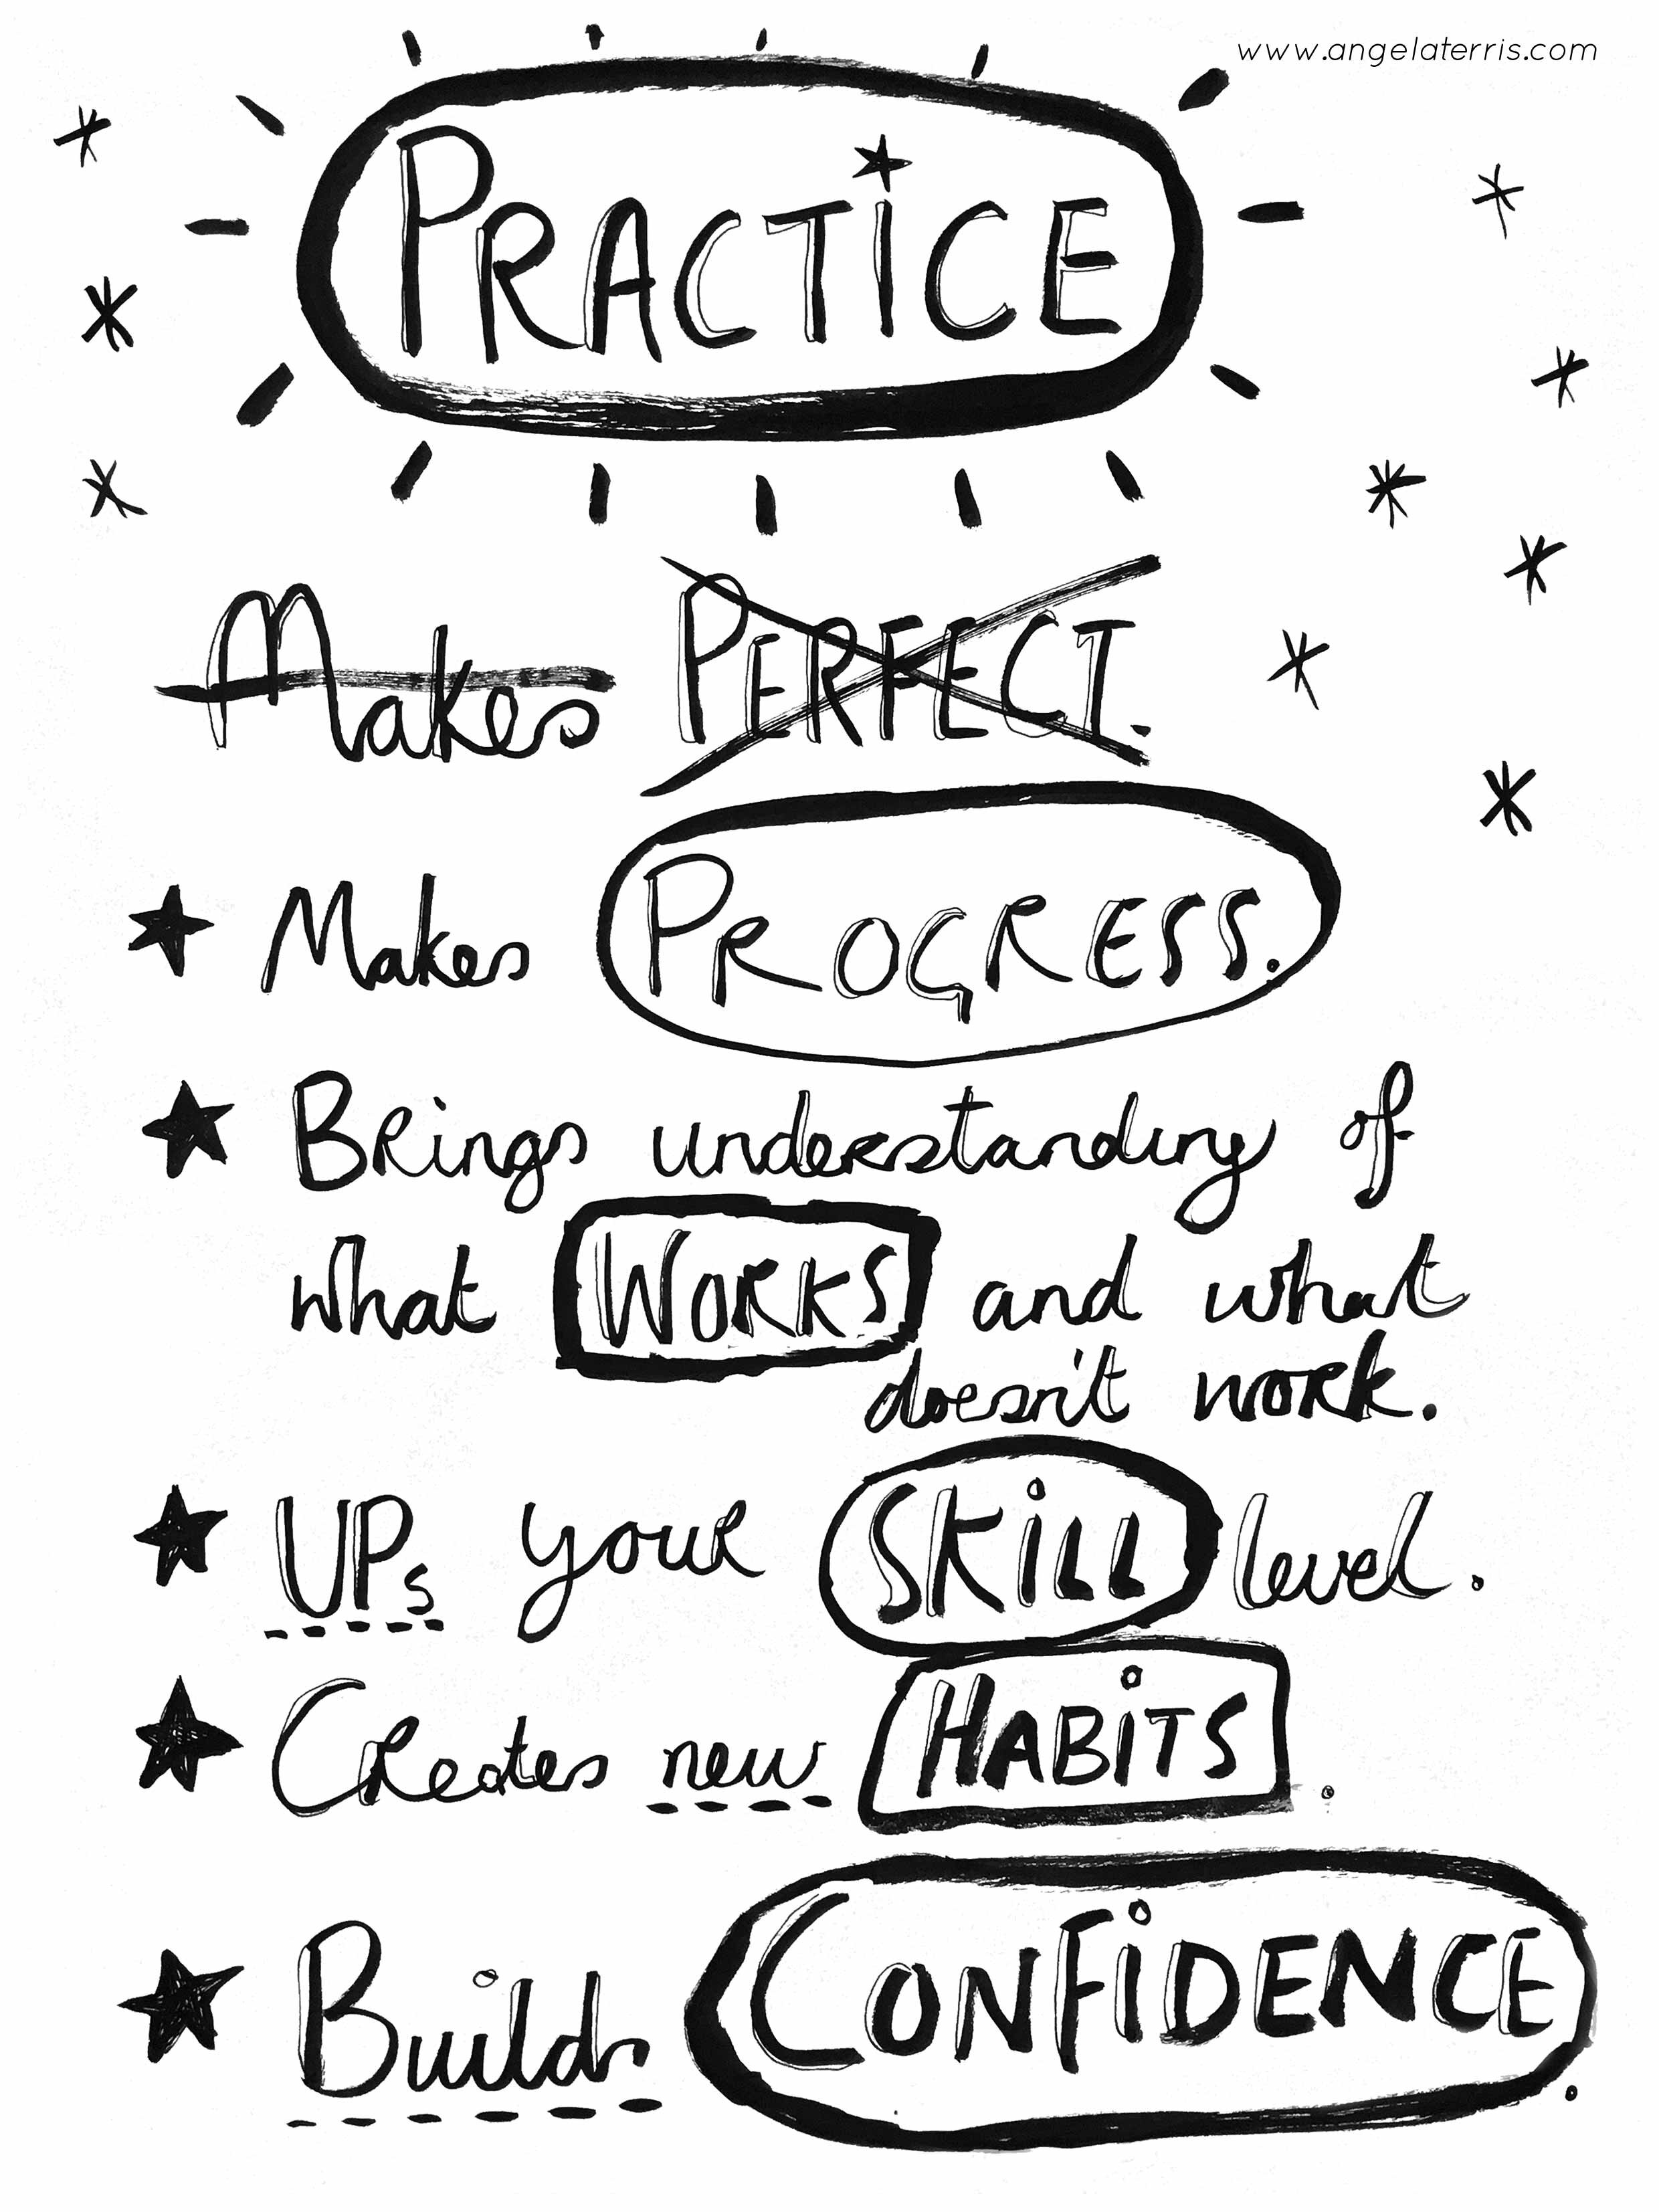 www.angelaterris.com
PRACTiCE
Makes PERFECT.
Makes PROGRESS.
BRings understanding of
what WORKS and what
doesn't work.
UPs your SKiLL level.
Creates new HABiTS.
Builds CONFiDENCE.